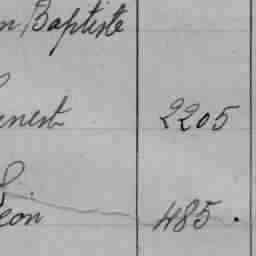 n Baptiste
rnest 2205
Léon 485.